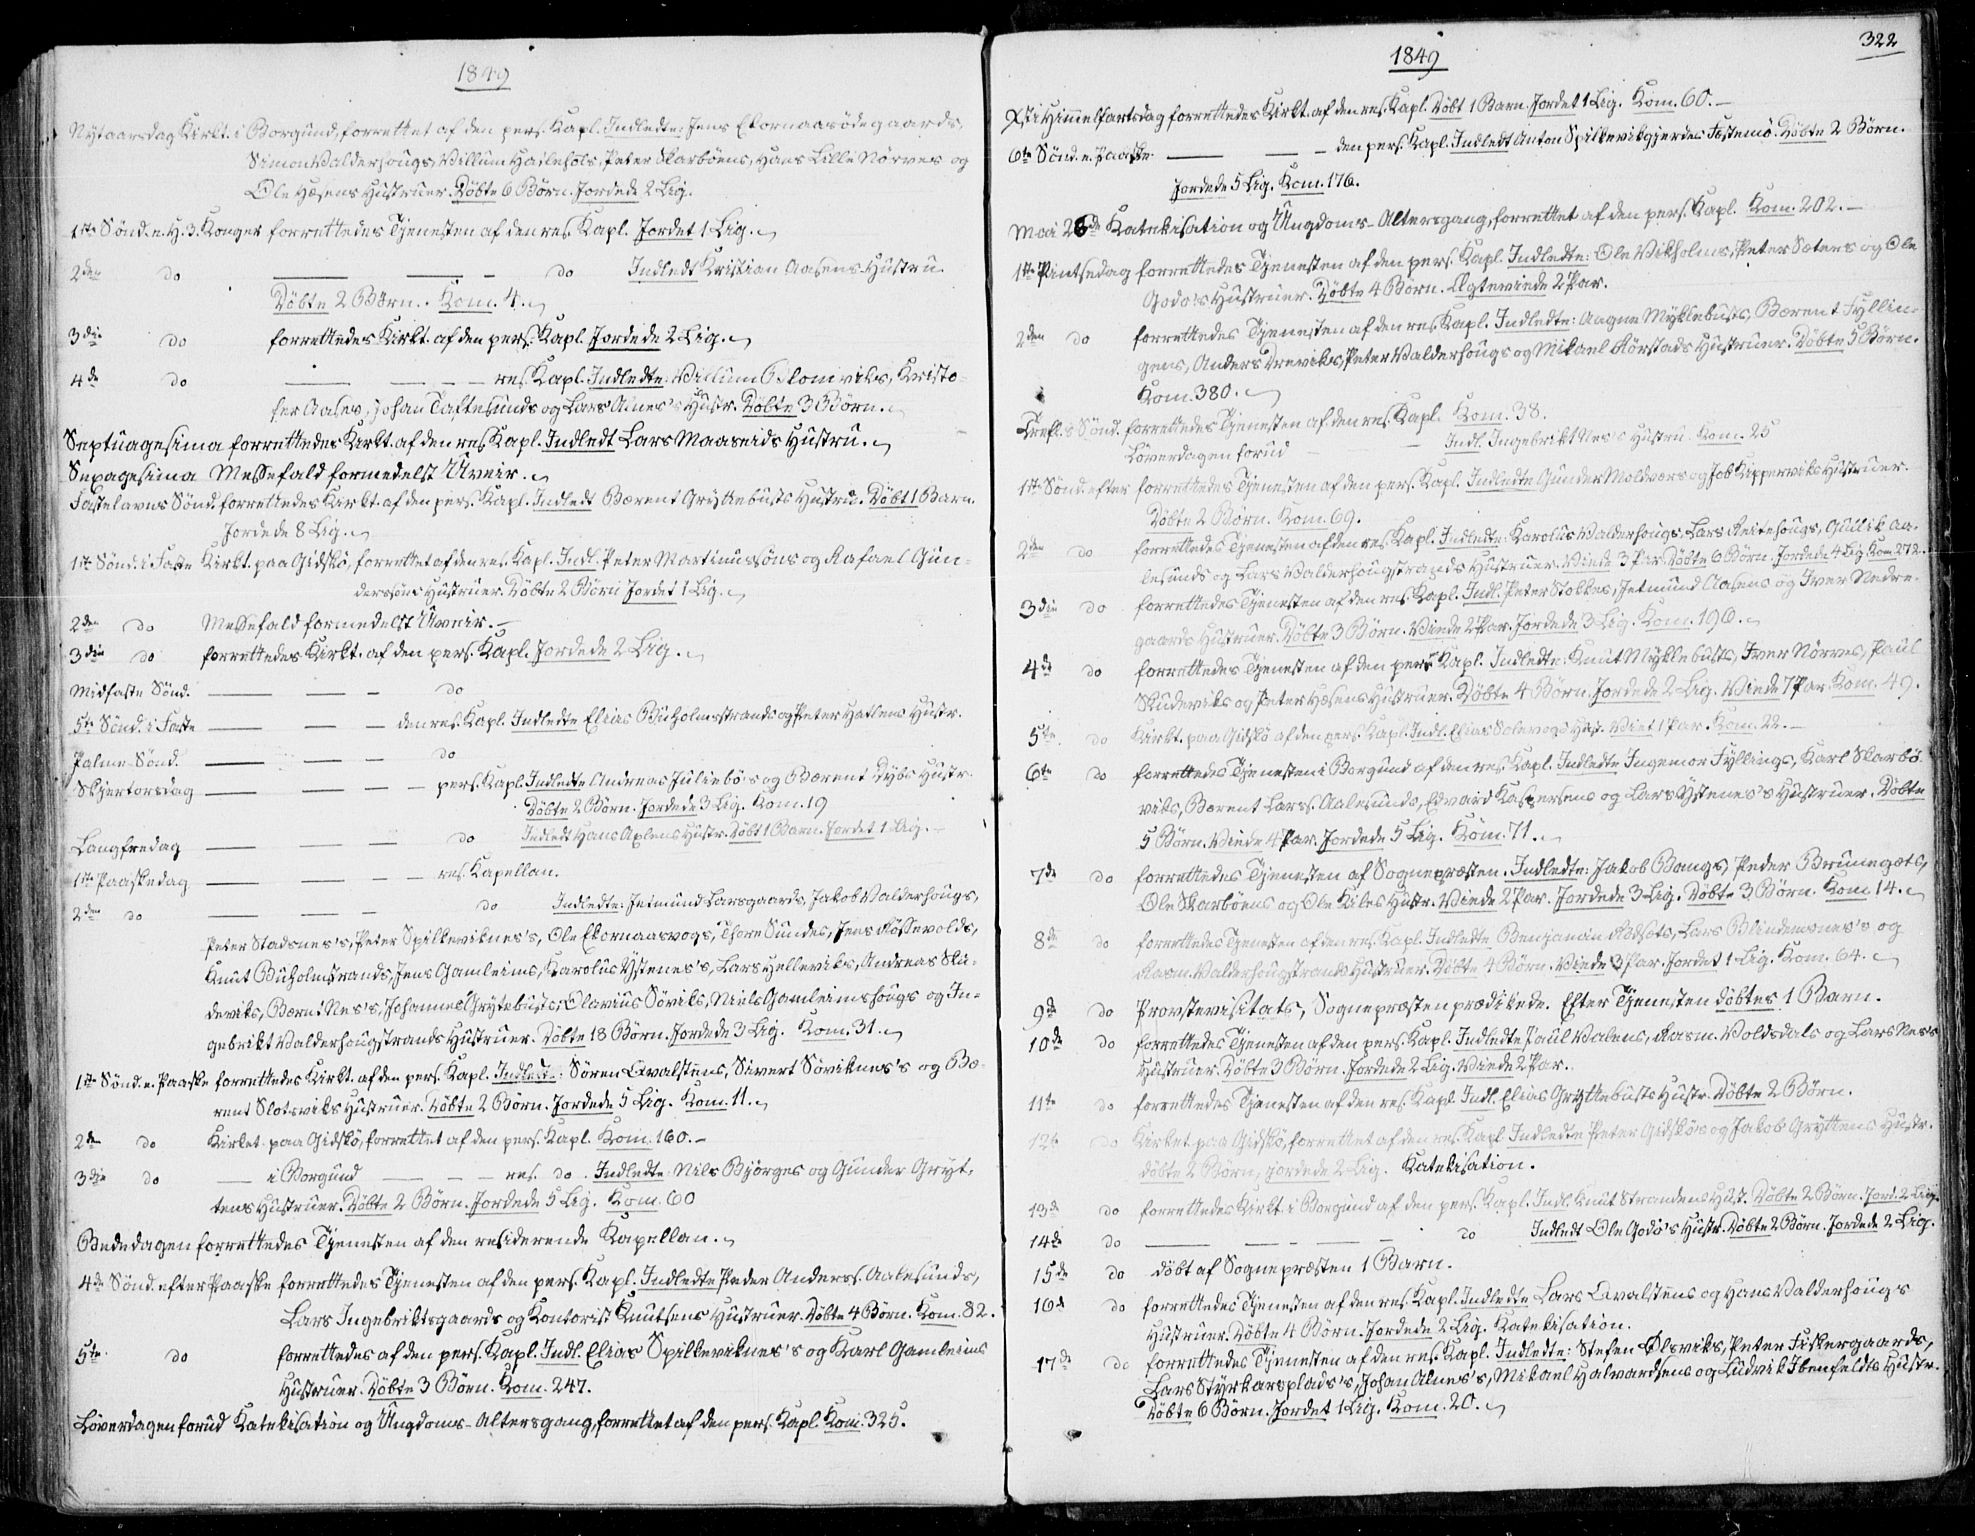 1849
Nytaarsdag Kirkt. i Borgund, forrettet af den pers. Kapl. Indledte: Jens Ekornaasödegaards,
Simon Valderhougs, Willum Hatlehols, Peter Skarböens, Hans Lille Nörves og
Ole Hesens Hustruer. Döbte 6 Börn. Jordede 2 Lig.
1ste Sönd. e. H. 3. Konger forrettedes Tjenesten af den res. Kapl. Jordet 1 Lig.
2den do — — — do Indledt Kristian Aasens Hustru.
Döbte 2 Börn. Kom. 4.
3die do forrettedes Kirkt. af den pers. Kapl. Jordede 2 Lig.
4de do — — — res. Kapl. Indledte: Willum Blomviks, Kristo-
fer Aases, Johan Taftesunds og Lars Alnes's Hustr. Döbte 3 Börn.
Septuagesima forrettedes Kirkt. af den res. Kapl. Indledt Lars Maaseids Hustru.
Sexagesima Messefald formedelst Uveir.
Fastelavns Sönd. forrettedes Kirkt. af den pers. Kapl. Indledt Bærent Gryttebusts Hustru. Döbt 1 Barn.
Jordede 8 Lig.
1ste Sönd. i Faste Kirkt. paa Gidskö, forrettet af den res. Kapl. Indl. Peter Martinussöns og Rafael Gun-
derssöns Hustruer. Döbte 2 Börn Jordet 1 Lig.
2den do Messefald formedelst Uveir.
3die do forrettedes Kirkt. af den pers. Kapl. Jordede 2 Lig.
Midfaste Sönd. — — — do
5te Sönd. i Faste — — — den res. Kapl. Indledte Elias Buholmstrands og Peter Hatlens Hustr.
Palme-Sönd. — — — do
Skjertorsdag — — — — pers. Kapl. Indledte Andreas Juliebö's og Bærent Dybs Hustr.
Döbte 2 Börn. Jordede 3 Lig. Kom. 19
Langfredag — — — do Indledt Hans Aplens Hustr. Döbt 1 Barn. Jordet 1 Lig.
1ste Paaskedag — — — — res. Kapellan.
2den do — — — do Indledte: Jetmund Larsgaards, Jakob Valderhougs,
Peter Stadsnes's, Peter Spilkeviknes's, Ole Ekornaasvogs, Thore Sundes, Jens Rössevolds,
Knut Buholmstrands, Jens Gamleims, Karolus Ystenes's, Lars Helleviks, Andreas Sku-
deviks, Bærnt Nes's, Johannes Grytebusts, Olavius Söviks, Niels Gamleimshougs og In-
gebrikt Valderhougstrands Hustruer. Döbte 18 Börn. Jordede 3 Lig. Kom. 31.
1ste Sönd. e. Paaske forrettedes Kirkt. af den pers. Kapl. Indledte: Sören Qvalstens, Sivert Söviknes's og Bæ-
rent Slotsviks Hustruer. Döbte 2 Börn. Jordede 5 Lig. Kom. 11.
2den do Kirket. paa Gidskö, forrettet af den pers. Kapl. Kom. 160.
3die do — i Borgund — — — res. do. Indledte Nils Björges og Gunder Gryt-
tens Hustruer. Döbte 2 Börn. Jordede 5 Lig. Kom. 60
Bededagen forrettedes Tjenesten af den residerende Kapellan.
4de Sönd. efter Paaske forrettedes Tjenesten af den pers. Kapl. Indledte Peder Anderss. Aalesunds,
Lars Ingebriktsgaards og Kontorist Knutsens Hustruer. Döbte 4 Börn. Kom. 82.
5te do forrettedes af den pers. Kapl. Indl. Elias Spilkeviknes's og Karl Gamleims
Hustruer. Döbte 3 Börn. Kom. 247.
Löverdagen forud Katekisation og Ungdoms-Altersgang, forrettet af den pers. Kapl. Kom. 325.
322
1849
Xsti Himmelfartsdag forrettedes Kirkt. af den res. Kapl. Döbt 1 Barn. Jordet 1 Lig. Kom. 60.
6te Sönd. e. Paaske — — — den pers. Kapl. Indledt Anton Spilkevikgjerdes Fæstemö. Döbte 2 Börn.
Jordede 5 Lig. Kom. 176.
Mai 28de Katekisation og Ungdoms-Altersgang, forrettet af den pers. Kapl. Kom. 202.
1ste Pintsedag forrettedes Tjenesten af den pers. Kapl. Indledte: Ole Vikholms, Peter Sæters og Ole
Godö's Hustruer. Döbte 4 Börn. Ægteviede 2 Par.
2den do forrettedes Tjenesten af den res. Kapl. Indledte: Aagne Myklebusts, Bærent Fyllin-
gens, Anders Dreviks, Peter Valderhougs og Mikael Rörstads Hustruer. Döbte 5 Börn.
Kom. 380.
Trefl.s Sönd. forrettedes Tjenesten af den res. Kapl. Kom. 38.
Löverdagen forud — Indl. Ingebrikt Nes's Hustru Kom. 25
1ste Sönd. efter forrettedes Tjenesten af den pers. Kapl. Indledte Gunder Moldværs og Job Kipperviks Hustruer.
Döbte 2 Börn. Kom. 69.
2den do forrettedes Tjenesten af den res. Kapl. Indledte: Karolus Valderhougs, Lars Reitehougs, Gulik Aa-
lesunds og Lars Valderhougstrands Hustruer. Viede 3 Par. Döbte 6 Börn. Jordede 4 Lig. Kom. 272.
3die do forrettedes Tjenesten af den res. Kapl. Indl. Peter Stokkes, Jetmund Aasens og Iver Nedre-
gaards Hustruer. Döbte 3 Börn. Viede 2 Par. Jordede 3 Lig. Kom. 196.
4de do forrettedes Tjenesten af den pers. Kapl. Indledte: Knut Myklebusts, Iver Nörves, Paul
Skudeviks og Peter Hæsens Hustruer. Döbte 4 Börn. Jordede 2 Lig. Viede 7 Par. Kom. 49.
5te do Kirkt. paa Gidskö af den pers. Kapl. Indl. Elias Solevogs Hust. Viet 1 Par. Kom. 22.
6te do forrettedes Tjenesten i Borgund af den res. Kapl. Indledte Ingemor Fyllings, Karl Skarbö-
viks, Bærent Larss. Aalesunds, Edvard Kaspersens og Lars Ystenes's Hustruer. Döbte
5 Börn. Viede 4 Par. Jordede 5 Lig. Kom. 71.
7de do forrettedes Tjenesten af Sognepræsten. Indledte: Jakob Bangs, Peder Brunegots,
Ole Skarböens og Ole Kiles Hustr. Viede 2 Par. Jordede 3 Lig. Döbte 3 Börn. Kom 14.
8de do forrettedes Tjenesten af den res. Kapl. Indledte Benjamin Rödsets, Lars Blindemsnes's og
Rasm. Valderhougstrands Hustruer. Döbte 4 Börn. Viede 3 Par. Jordet 1 Lig. Kom. 64.
9de do Provstevisitats, Sognepræsten prædikede. Efter Tjenesten döbtes 1 Barn.
10de do forrettedes Tjenesten af den pers. Kapl. Indledte Paul Valens, Rasm. Voldsdals og Lars Nes's
Hustruer. Döbte 3 Börn. Jordede 2 Lig. Viede 2 Par.
11te do forrettedes Tjenesten af den res. Kapl. Indl. Elias Gryttebusts Hustr. Döbte 2 Börn.
12te do Kirket paa Gidskö, forrettet af den res. Kapl Indledte Peter Gidskös og Jakob Gryttens Hustr.
döbte 2 Börn, jordede 2 Lig. Katekisation.
13de do forrettedes Kirkt. i Borgund af den pers. Kapl. Indl. Knut Strandens Hust. Döbte 2 Börn. Jord. 2 Lig.
14de do — — — — do Indledt Ole Godö's Hustr. Döbte 2 Börn. Jordede 2 Lig.
15de do döbt af Sognepræsten 1 Barn.
16de do forrettedes Tjenesten af den res. Kapl. Indledte Lars Qvalstens og Hans Valderhoug's
Hustruer. Döbte 4 Börn. Jordede 2 Lig. Katekisation.
17de do forrettedes Tjenesten af den res. Kapl. Indledte: Stefen Olsviks, Peter Fiskergaards,
Lars Styrkarsplads's, Johan Alnes's, Mikael Halvardsens og Ludvik Ibenfeldts Hustr.
Döbte 6 Börn. Jordet 1 Lig. Kom. 20.